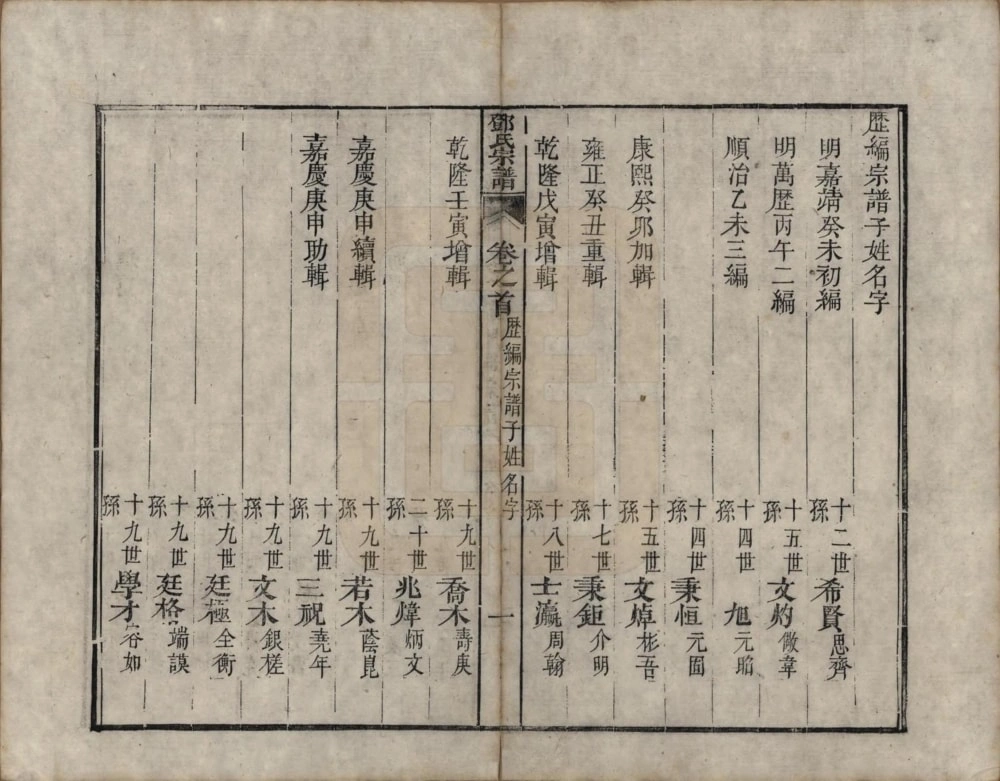 歴編宗譜子姓名字
明嘉靖癸未初編 十二世孫 希賢 思齊
明萬歷丙午二編 十五世孫 文灼 儆韋
順治乙未三編 十四世孫 旭 元昭
十四世孫 秉恒 元固
康熙癸夘加輯 十五世孫 文焯 彬吾
雍正癸丑重輯 十七世孫 秉鉅 介明
乾隆戊寅增輯 十八世孫 士瀛 周翰
鄧氏宗譜 卷之首 歴編宗譜子姓名字 一
乾隆壬寅增輯 十九世孫 喬木 壽庚
二十世孫 兆煒 炳文
嘉慶庚申續輯 十九世孫 若木 蔭崑
嘉慶庚申助輯 十九世孫 三祝 堯年
十九世孫 文木 銀槎
十九世孫 廷極 全衡
十九世孫 廷格 端謨
十九世孫 學才 如